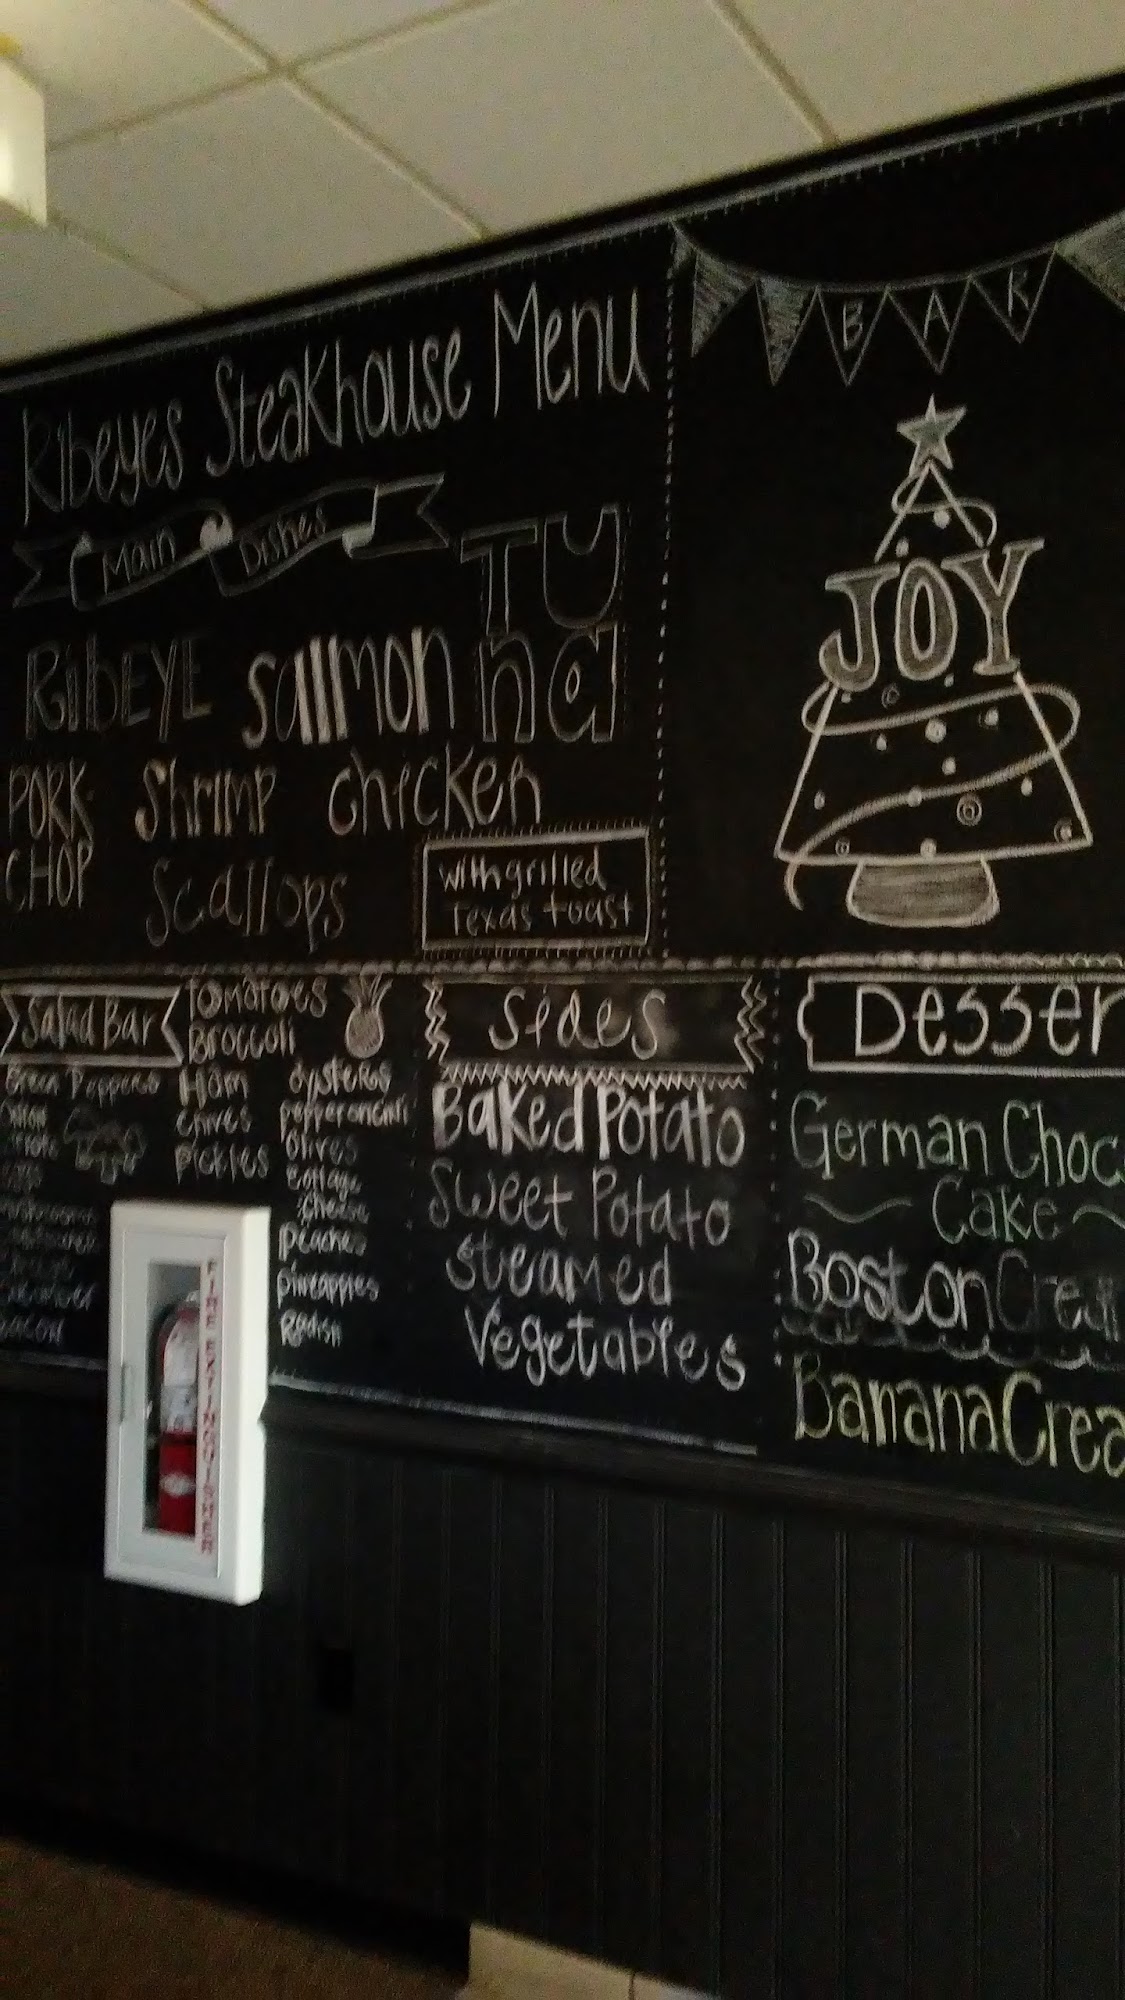 Ribeyes Steakhouse Menu
Main Dishes
RibEYE salmon TUna
PORK CHOP
Shrimp
chicken
Scallops
with grilled
Texas toast
BAK
JOY
Salad Bar
Green Peppers
onion
Bacon
Tomatoes
Broccoli
Ham
chives
pickles
oysters
pepperoncini
olives
cottage
cheese
peaches
pineapples
Radish
Sides
Baked Potato
Sweet Potato
Steamed
Vegetables
Desser
German Choc
Cake
Boston Cream
Banana Crea
FIRE EXTINGUISHER